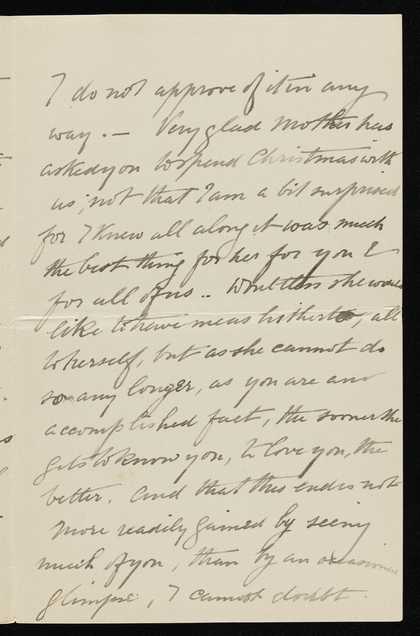 I do not approve of it in any
way. — Very glad Mother has
asked you to spend Christmas with
us; not that I am a bit surprised
for I knew all along it was much
the best thing for her for you &
for all of us.. Doubtless she would
like to have me as hitherto, all
to herself, but as she cannot do
so any longer, as you are an
accomplished fact, the sooner she
gets to know you, to love you, the
better. And that this end is not
more readily gained by seeing
much of you, than by an occasional
glimpse, I cannot doubt.